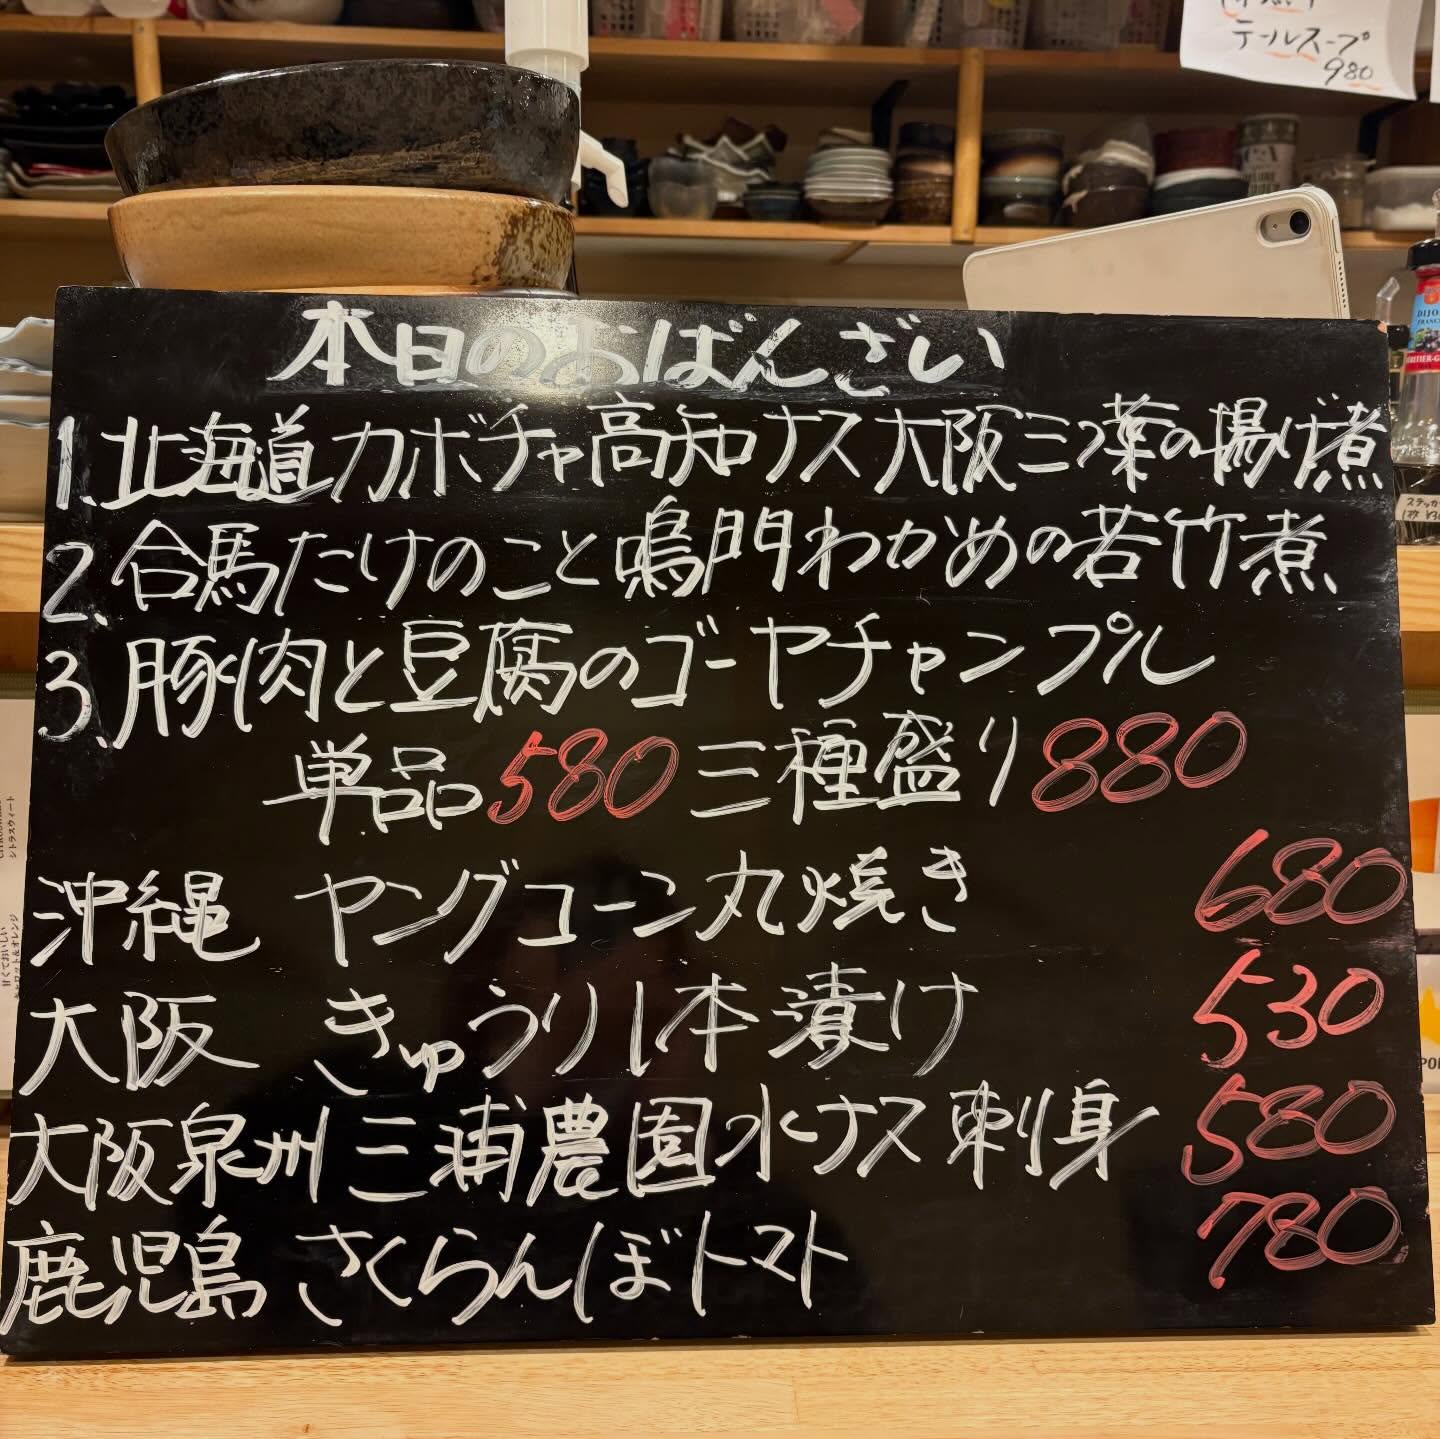 テールスープ
980
本日のおばんざい
1.北海道カボチャ高知ナス大阪三つ葉の揚げ煮
2.合馬たけのこと鳴門わかめの若竹煮
3.豚肉と豆腐のゴーヤチャンプル
単品580 三種盛り880
沖縄 ヤングコーン丸焼き 680
大阪 きゅうり1本漬け 530
大阪泉州三浦農園水ナス刺身 580
鹿児島 さくらんぼトマト 780
DIJO
FRANC
ステッカ
シトラスウィート
甘くておいしい
キャロット&オレンジ